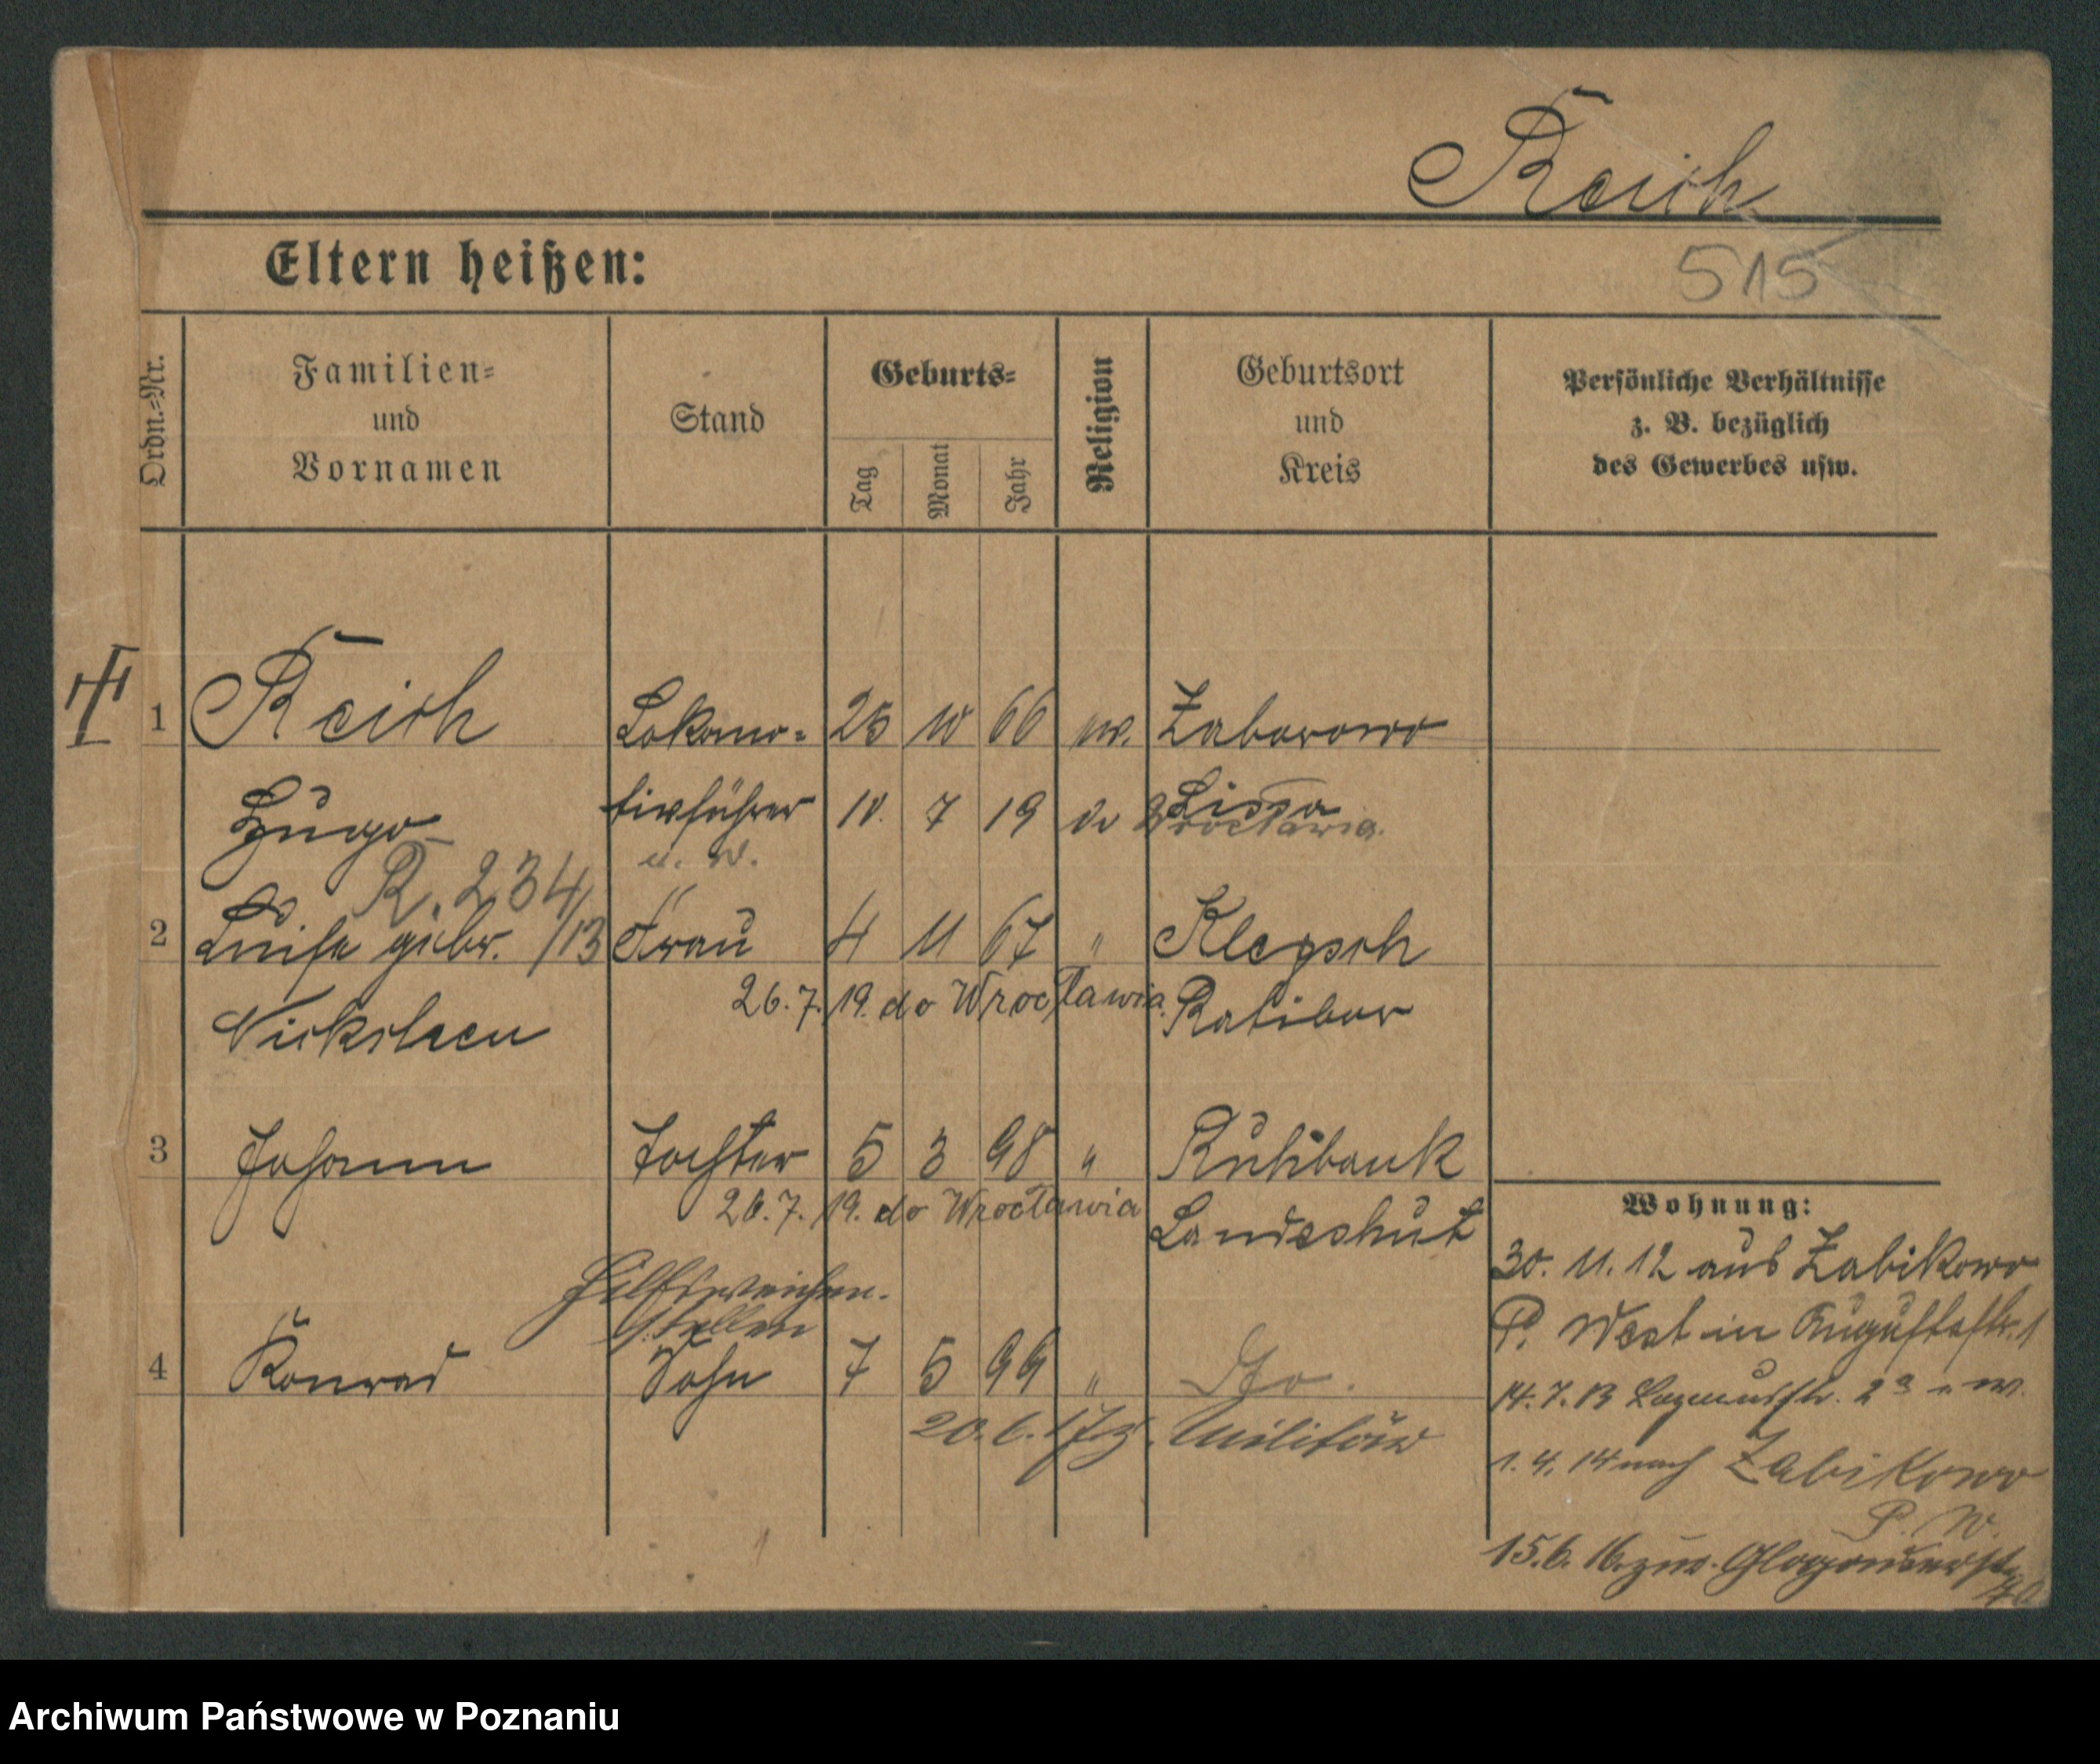 Reich
Eltern heißen:
515
Ordn.=Nr.
Familien=
und
Vornamen
Stand
Geburts=
Tag
Monat
Jahr
Religion
Geburtsort
und
Kreis
Persönliche Verhältnisse
z. B. bezüglich
des Gewerbes usw.
1 Reich Lokomo= 25 10 66 ev. Zaborowo
Hugo tivführer 10. 7 19 do Wrocławia. Lissa
R. 234/13
2 Luise gebr. Frau 4 11 67 " Klepsch
26. 7. 19. do Wrocławia. Ratibor
3 Johann Tochter 5 3 98 " Ruhbank
26. 7. 19. do Wrocławia Landeshut
Hilfsweichen.
steller
4 Konrad Sohn 7 5 99 " Do.
20. 6. 17 z. Militär
Wohnung:
30. 11. 12 aus Zabikowo
P. West in Augustastr. 1
14. 7. 13
1. 4. 14 nach Zabikowo
P. W.
15. 6. 16 zur. Glogauerstr.
Archiwum Państwowe w Poznaniu